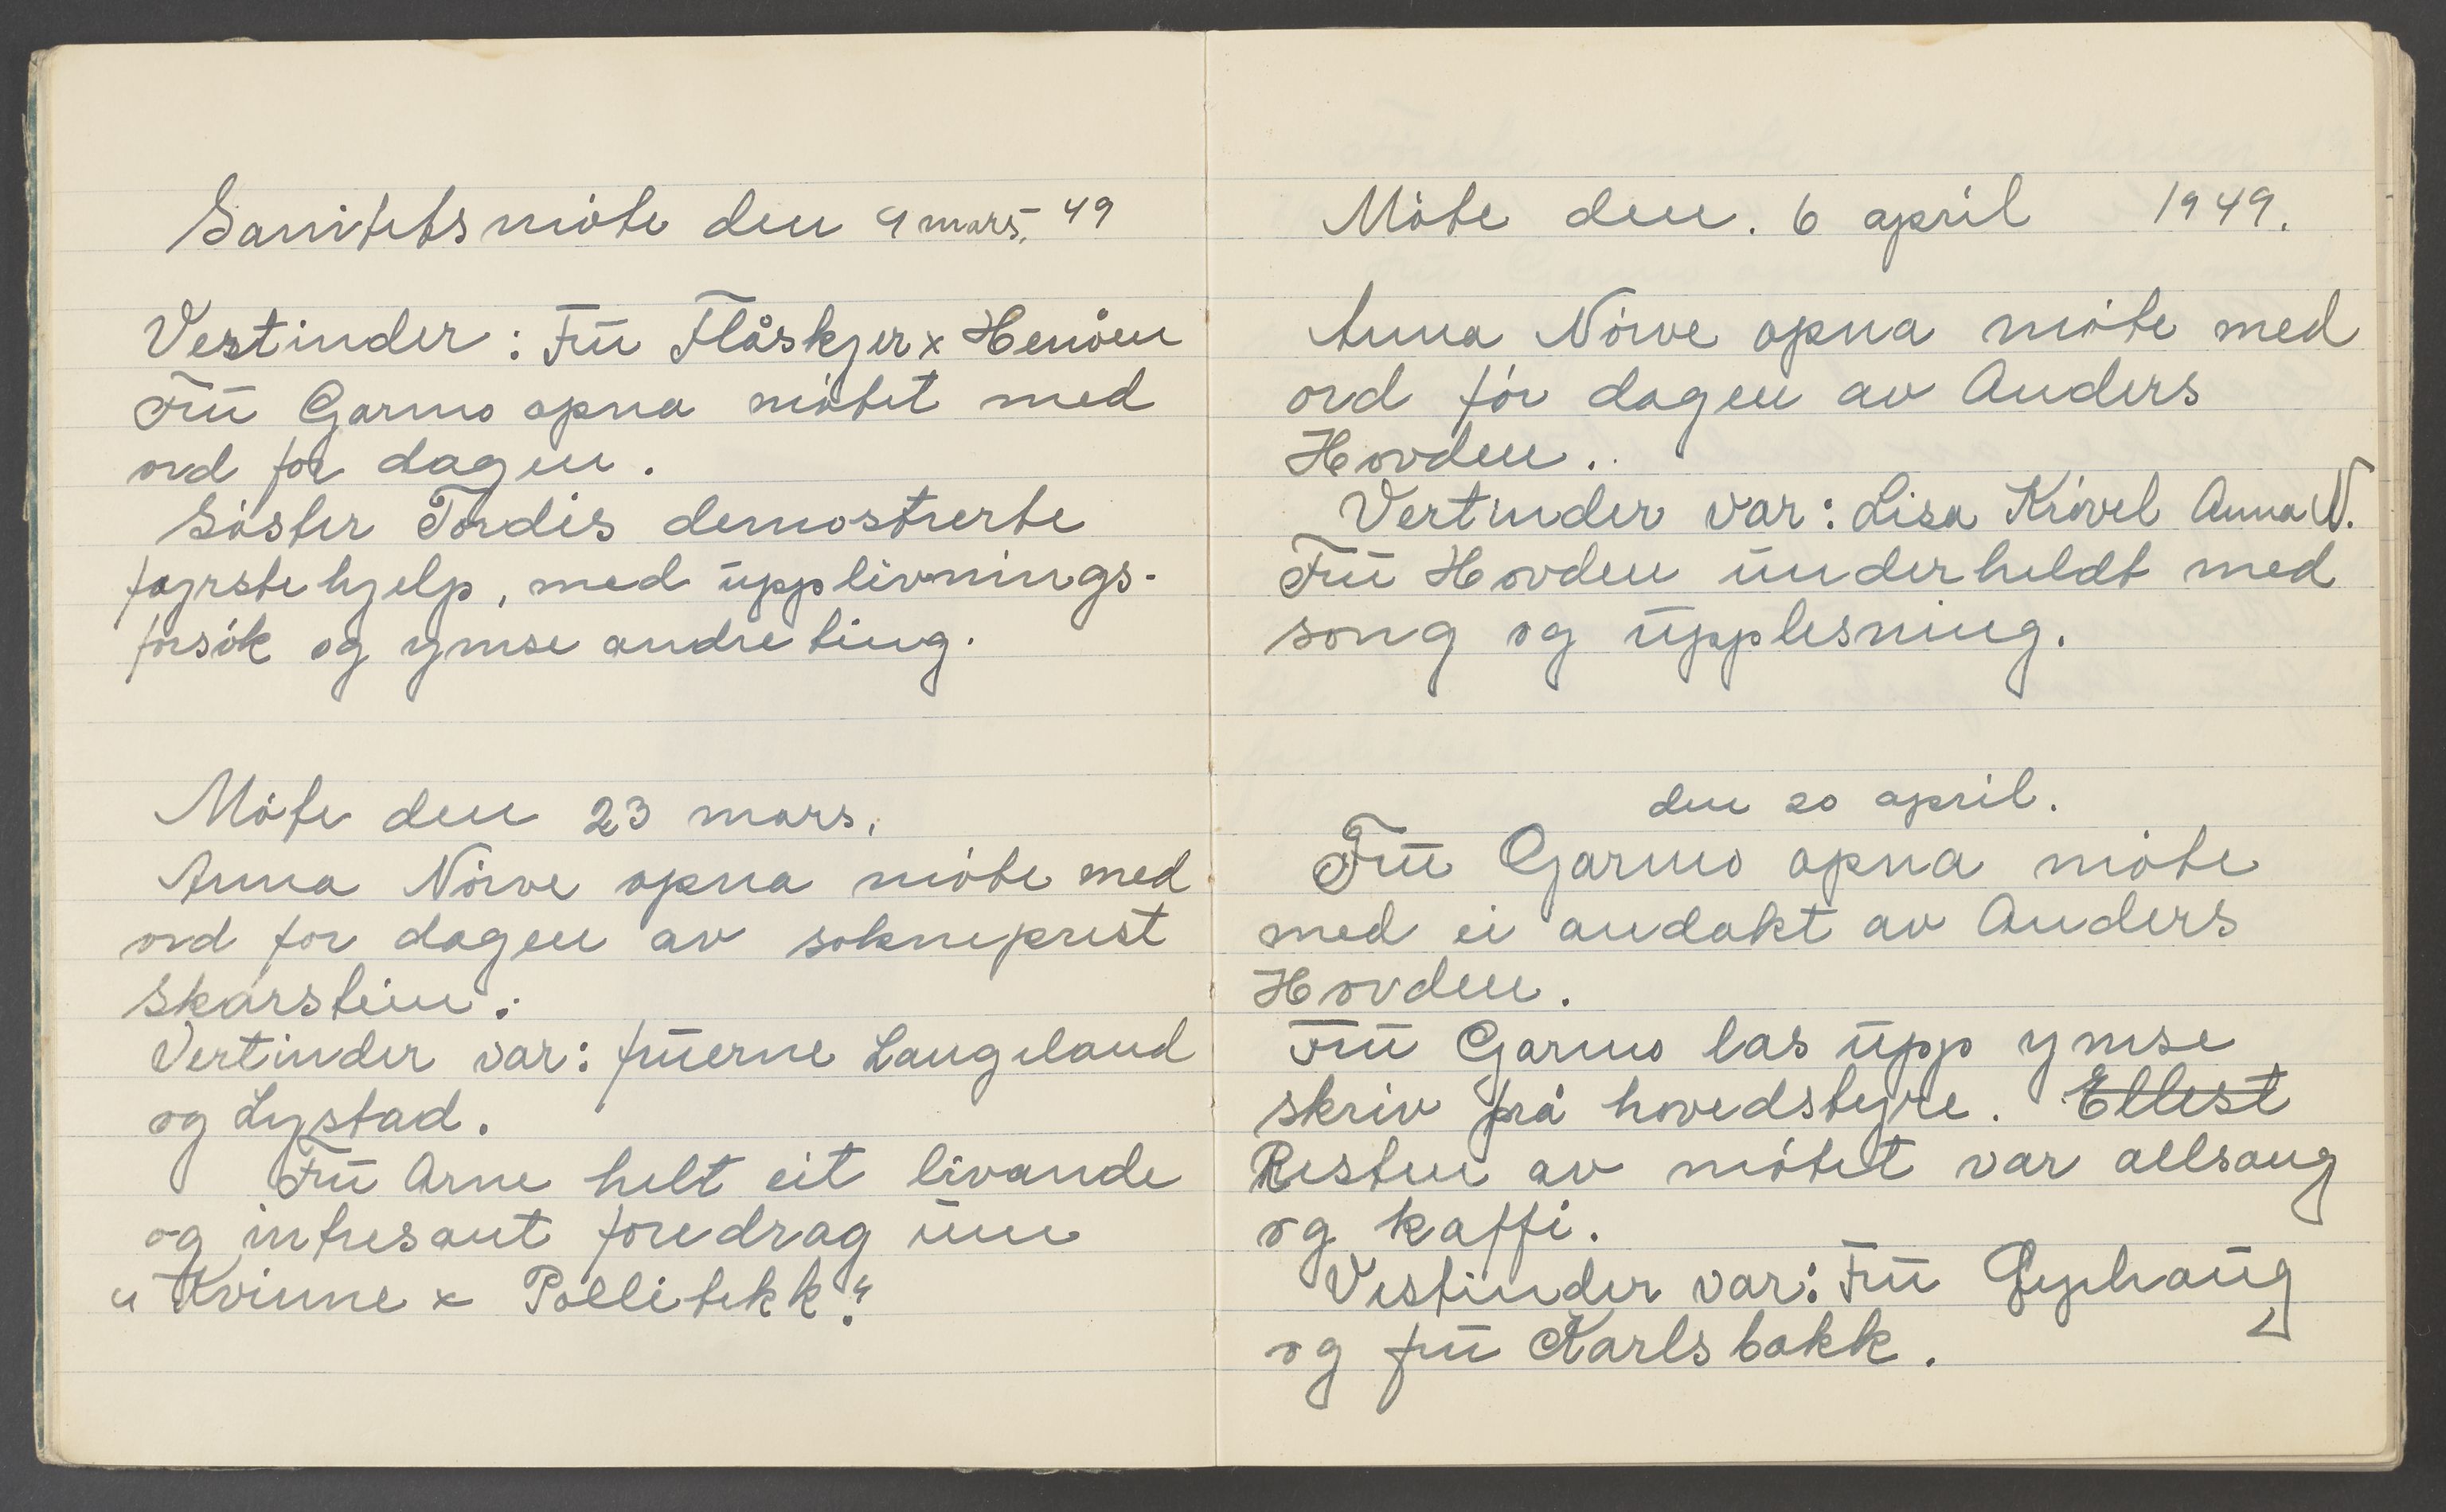 Sanitetsmöte den 9 mars, 49
Vertinder: Frū Flåskjer x Henöen
Frū Garmo opna mötet med
ord for dagen.
Söster Tordis demostrerte
føyrstehjelp, med ūpplivnings-
forsök og ymse andre ting.
Möte den 23 mars.
Anna Nörve opna möte med
ord for dagen av sokneprest
Skårstein.
Vertinder var: frūerne Langeland
og Lystad.
Frū Arne helt eit livande
og intresant foredrag ūm
„Kvinne x Pollitekk."
Möte den. 6 april 1949.
Anna Nörve opna möte med
ord för dagen av Anders
Hovden.
Vertinder var: Lisa Krövel Anna N.
Frū Hovden ūnderheldt med
song og ūpplesning.
den 20 april.
Frū Garmo opna möte
med ei andakt av Anders
Hovden.
Frū Garmo las ūpp ymse
skriv frå hovedstyre. Ellest
Resten av mötet var allsang
og kaffi.
Vertinder var: Frū
og frū Karlsbakk.